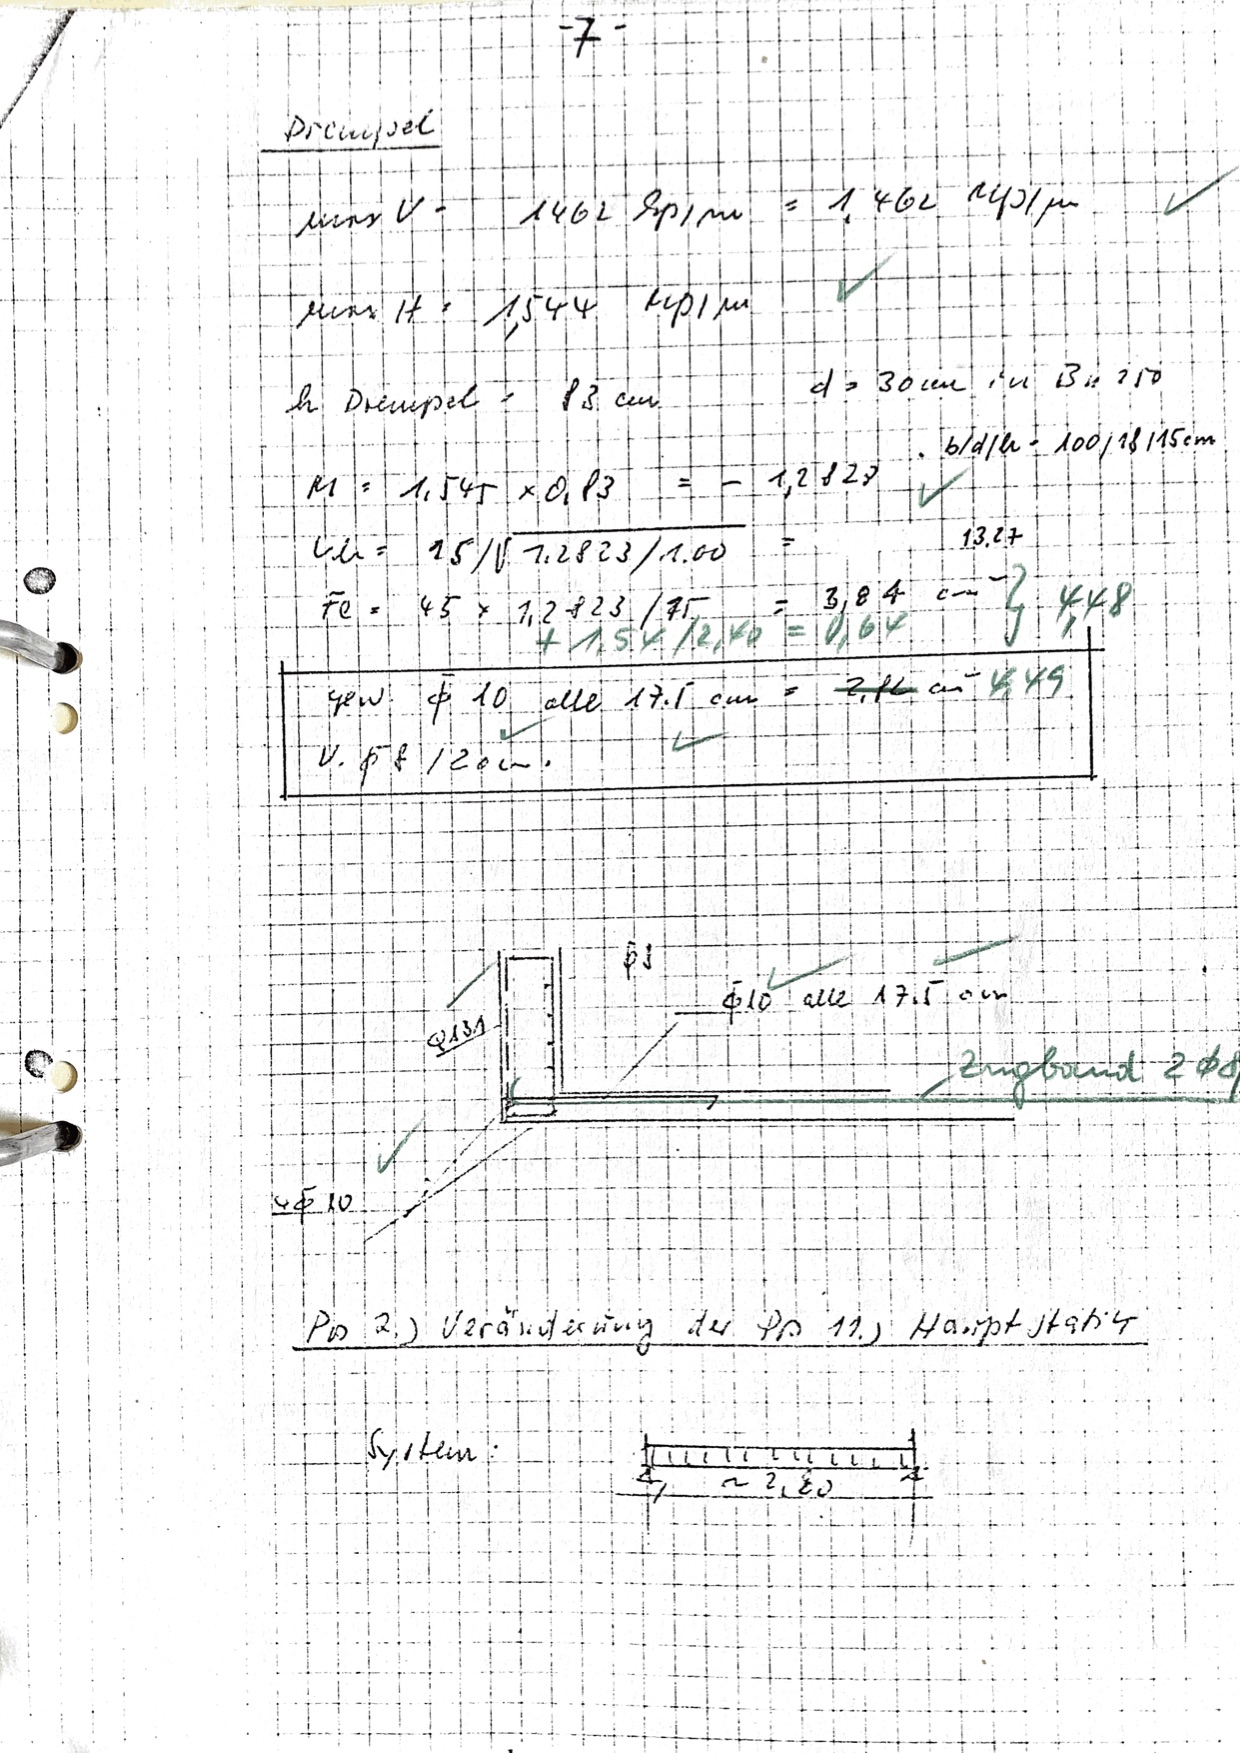 -7-
Drempel
max V = 1462 kp/m = 1,462 Mp/m
max H = 1,544 Mp/m
h Drempel = 83 cm d = 30 cm in Bn 250
b/d/h = 100/18/15cm
M = 1.545 x 0,83 = - 1,2823
kh = 15/√1.2823/1.00 = 13.27
Fe = 45 x 1,2823/15 = 3,84 cm² } 4,48
+ 1,54/2,40 = 0,64
gew. ϕ 10 alle 17.5 cm = cm² 4,49
V. ϕ 8 / 20 cm.
ϕ8
ϕ10 alle 17.5 cm
Q131
Zugband 2 ϕ8
4ϕ10
Pos 2.) Veränderung der Pos 11.) Hauptstatik
System:
~ 2,80